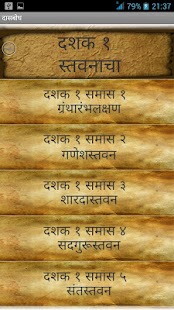 21:37
दासबोध
दशक १
स्तवनाचा
दशक १ समास १
ग्रंथारंभलक्षण
दशक १ समास २
गणेशस्तवन
दशक १ समास ३
शारदास्तवन
दशक १ समास ४
सदगुरूस्तवन
दशक १ समास ५
संतस्तवन